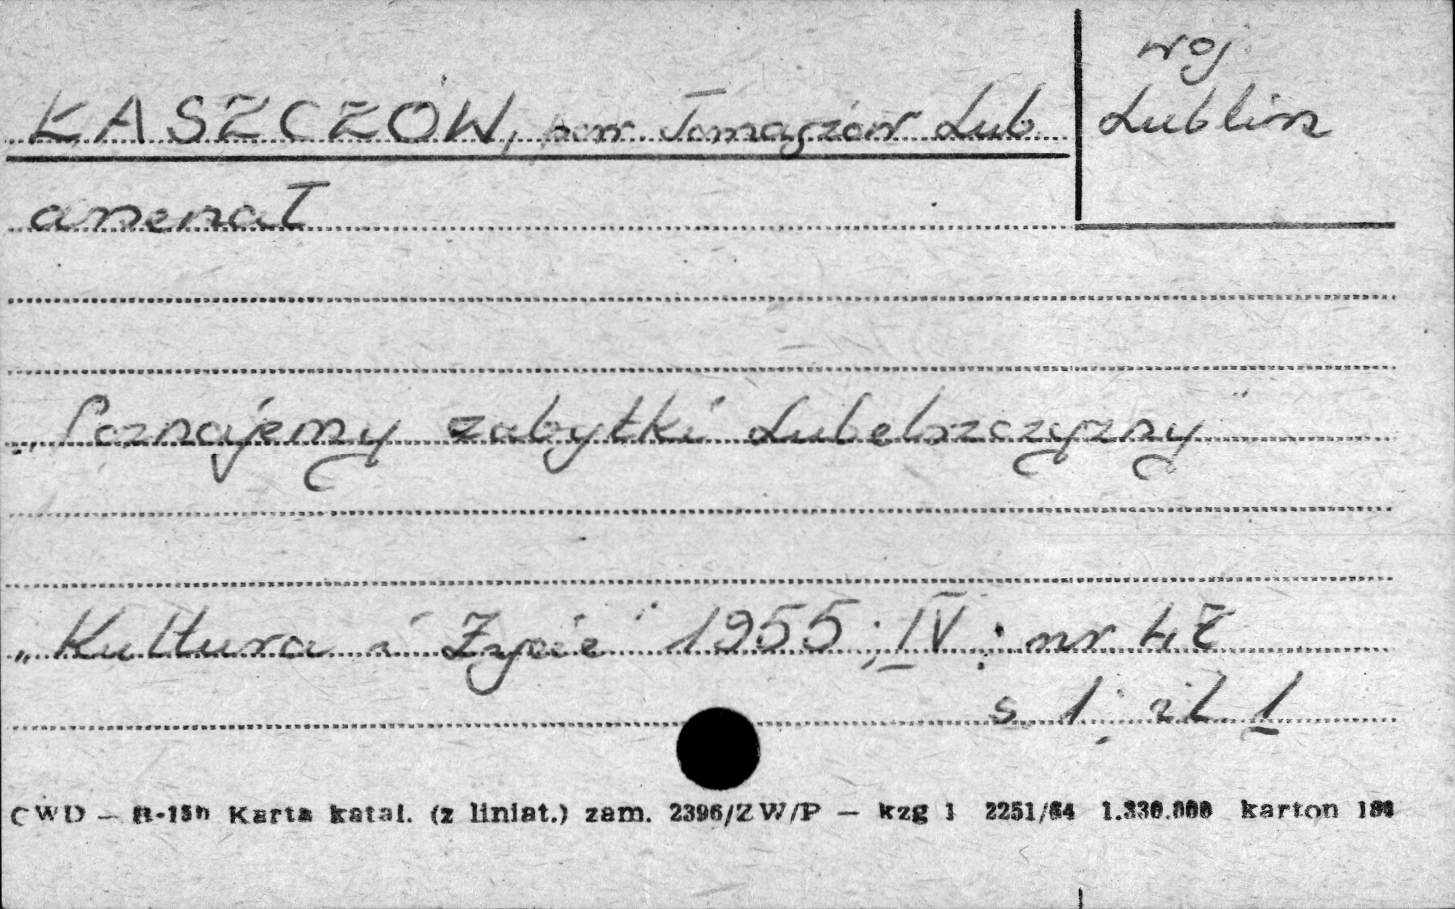 woj
ŁASZCZÓW, pow. Tomaszów Lub.
Lublin
arsenał
„Poznajemy zabytki Lubelszczyzny"
„Kultura i Życie" 1955; IV; nr 47
s. 1; il. 1
CWD — R-15b Karta katal. (z liniat.) zam. 2396/ZW/P — kzg 1 2251/64 1.330.000 karton